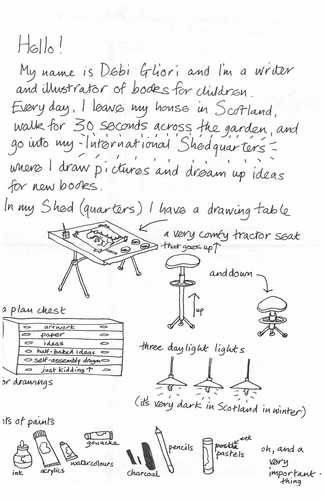 Hello!
My name is Debi Gliori and I'm a writer
and illustrator of books for children.
Every day, I leave my house in Scotland,
walk for 30 seconds across the garden, and
go into my -International Shedquarters-
where I draw pictures and dream up ideas
for new books.
In my Shed (quarters) I have a drawing table
a very comfy tractor seat
that goes up↑
and down
up
a plan chest
artwork
paper
ideas
half-baked ideas
self-assembly dragon
just kidding↑
for drawings
three daylight lights
(it's very dark in Scotland in winter)
of paints
ink
acrylics
watercolours
gouache
charcoal
pencils
pastels
oh, and a
very
important
thing